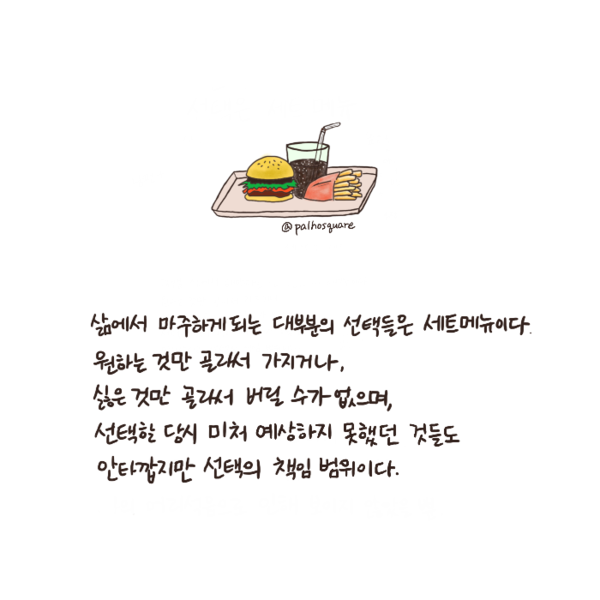 @palhosquare
삶에서 마주하게되는 대부분의 선택들은 세트메뉴이다.
원하는 것만 골라서 가지거나,
싫은 것만 골라서 버릴 수가 없으며,
선택할 당시 미처 예상하지 못했던 것들도
안타깝지만 선택의 책임 범위이다.